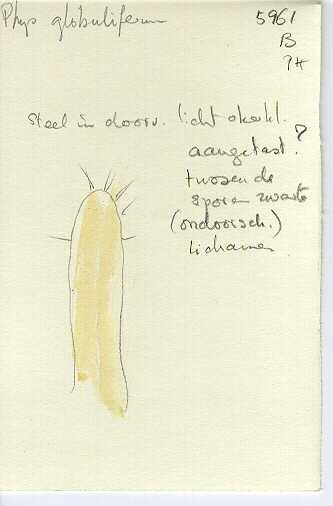 Phys globuliferum
5961
B
?H
steel in doorv. licht okerkl.
aangetast?
tussen de
sporen zwarte
(ondoorsch.)
lichamen